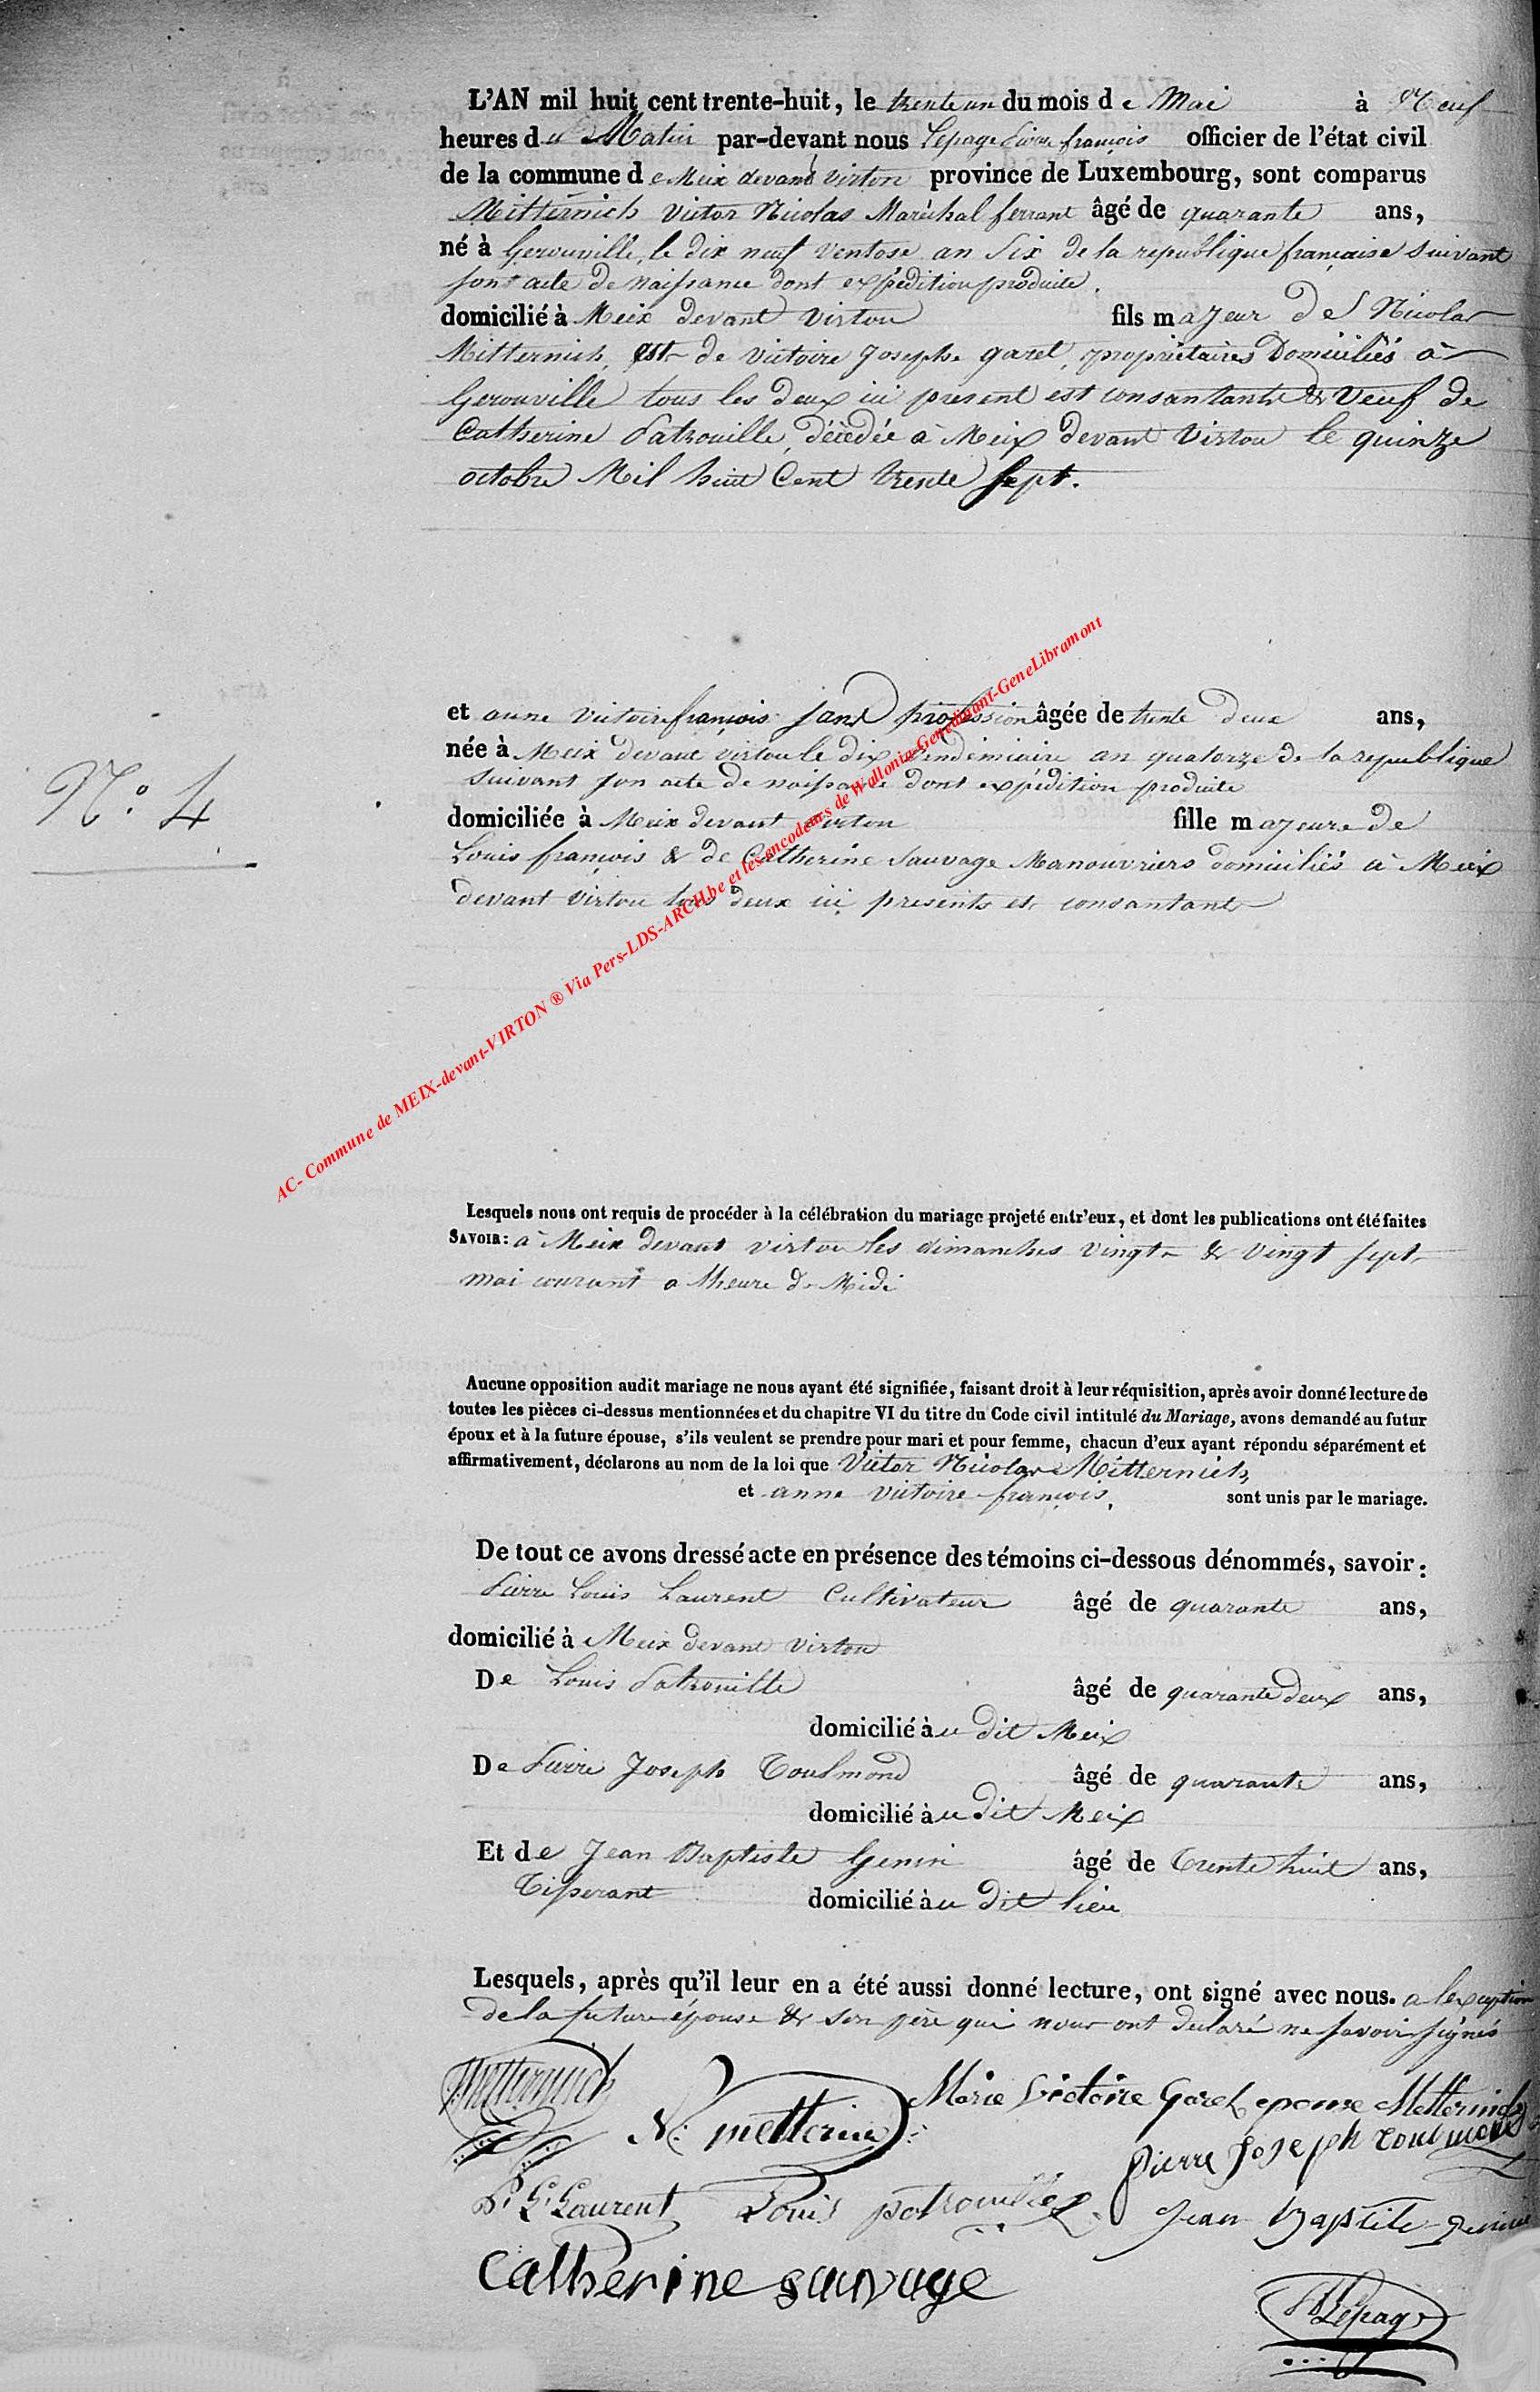 L'AN mil huit cent trente-huit, le trente un du mois de Mai à Neuf
heures du Matin par-devant nous Lepage Pierre françois officier de l'état civil
de la commune de Meix devant Virton province de Luxembourg, sont comparus
Mitternich Victor Nicolas Maréchal ferrant âgé de quarante ans,
né à Gerouville, le dix neuf Ventose an Six de la republique française suivant
son acte de naissance dont expédition produite.
domicilié à Meix devant Virton fils majeur de Nicolas
Mitternich, et de Victoire Josephe garel, propriétaires Domiciliés à
Gerouville tous les deux ici present est consantants & Veuf de
Catherine Patrouille, décédée à Meix devant Virton le quinze
octobre Mil huit Cent trente sept.
et anne Victoire françois sans profession âgée de trente deux ans,
N.º 4
née à Meix devant virton le dix vendémiaire an quatorze de la republique
suivant son acte de naissance dont expédition produite
domiciliée à Meix devant virton fille majeure de
Louis françois & de Catherine Sauvage Manouvriers domiciliés à Meix
devant Virton tous deux ici presents et consantants
AC- Commune de MEIX-devant-VIRTON ® Via Pers-LDS-ARCH.be et les encodeurs de Wallonia-Genedinant-GeneLibramont
Lesquels nous ont requis de procéder à la célébration du mariage projeté entr'eux, et dont les publications ont été faites
SAVOIR: à Meix devant virton les dimanches vingt & vingt sept
mai courant a lheure de Midi
Aucune opposition audit mariage ne nous ayant été signifiée, faisant droit à leur réquisition, après avoir donné lecture de
toutes les pièces ci-dessus mentionnées et du chapitre VI du titre du Code civil intitulé du Mariage, avons demandé au futur
époux et à la future épouse, s'ils veulent se prendre pour mari et pour femme, chacun d'eux ayant répondu séparément et
affirmativement, déclarons au nom de la loi que Victor Nicolas Mitternich,
et anne Victoire françois, sont unis par le mariage.
De tout ce avons dressé acte en présence des témoins ci-dessous dénommés, savoir:
Pierre Louis Laurent Cultivateur âgé de quarante ans,
domicilié à Meix devant virton
De Louis Patrouille âgé de quarante deux ans,
domicilié au dit Meix
De Pierre Joseph Toulmond âgé de quarante ans,
domicilié au dit Meix
Et de Jean Baptiste Genin âgé de trente huit ans,
Tisserant domicilié au dit lieu
Lesquels, après qu'il leur en a été aussi donné lecture, ont signé avec nous. a lexception
de la future épouse & son père qui nous ont declaré ne savoir signés
Metternich N. metterni Marie Victoire Garel epouse Metternich
pierre Joseph toulmond
P. L. Laurent Louis patrouille Jean Baptiste Genin
Catherine sauvage
Lepage